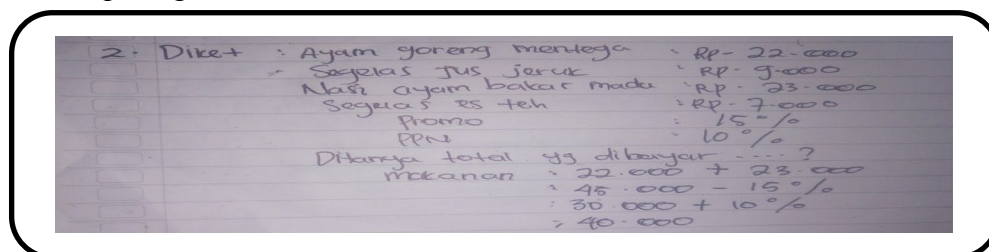 2. Diket : Ayam goreng mentega : RP- 22.000
- Segelas Jus jeruk : RP. 9.000
Nasi ayam bakar madu : RP. 23.000
Segelas es teh : RP- 7.000
Promo : 15%
PPN : 10%
Ditanya total yg dibayar ....?
makanan : 22.000 + 23.000
: 45.000 - 15%
: 30.000 + 10%
= 40.000